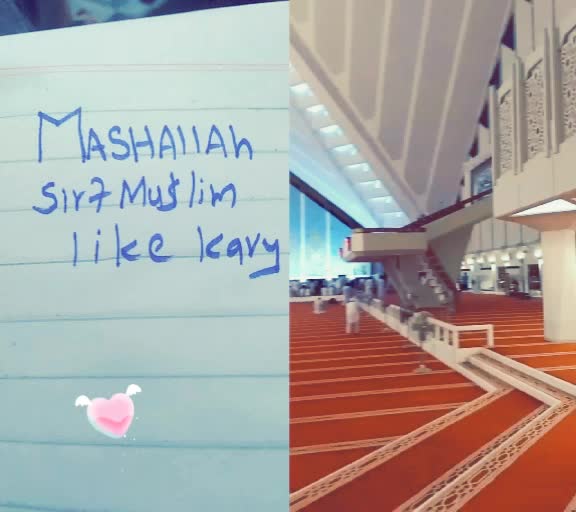 MASHAllAh
Sirf Muslim
like kary